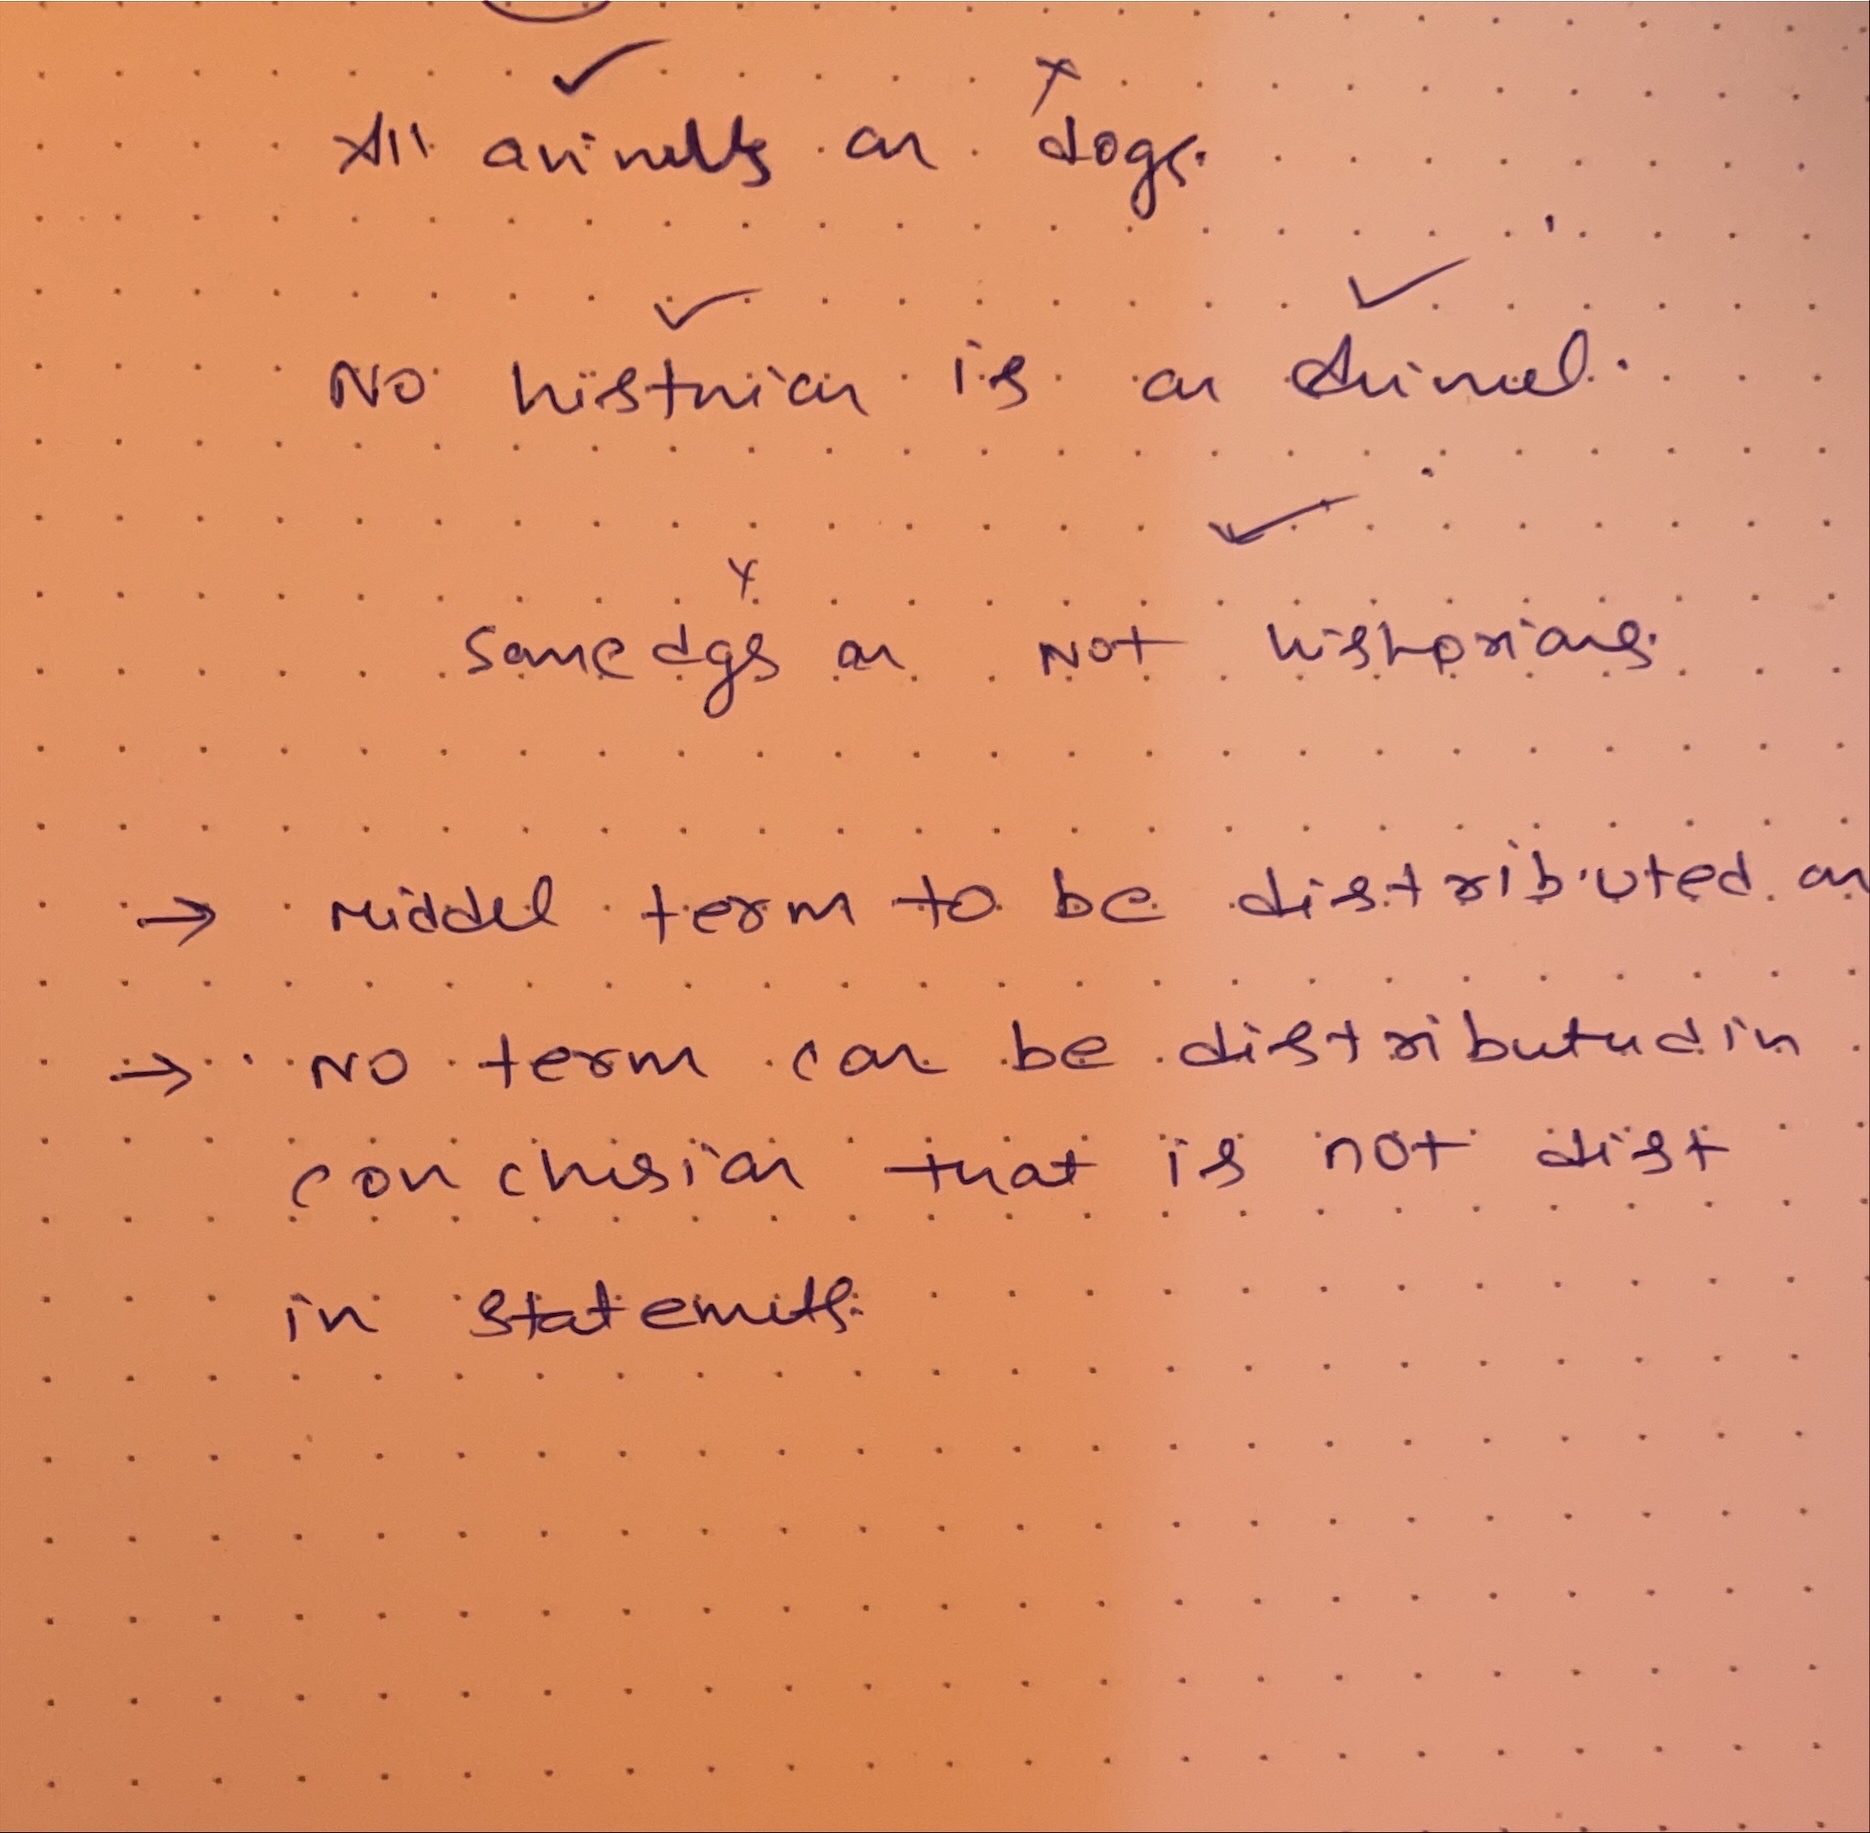 All animals are dogs.
No historian is an Animal.
Some dgs are not historians.
→ Middel term to be distributed
→ No term can be distributed in
conclusion that is not dist
in statements.